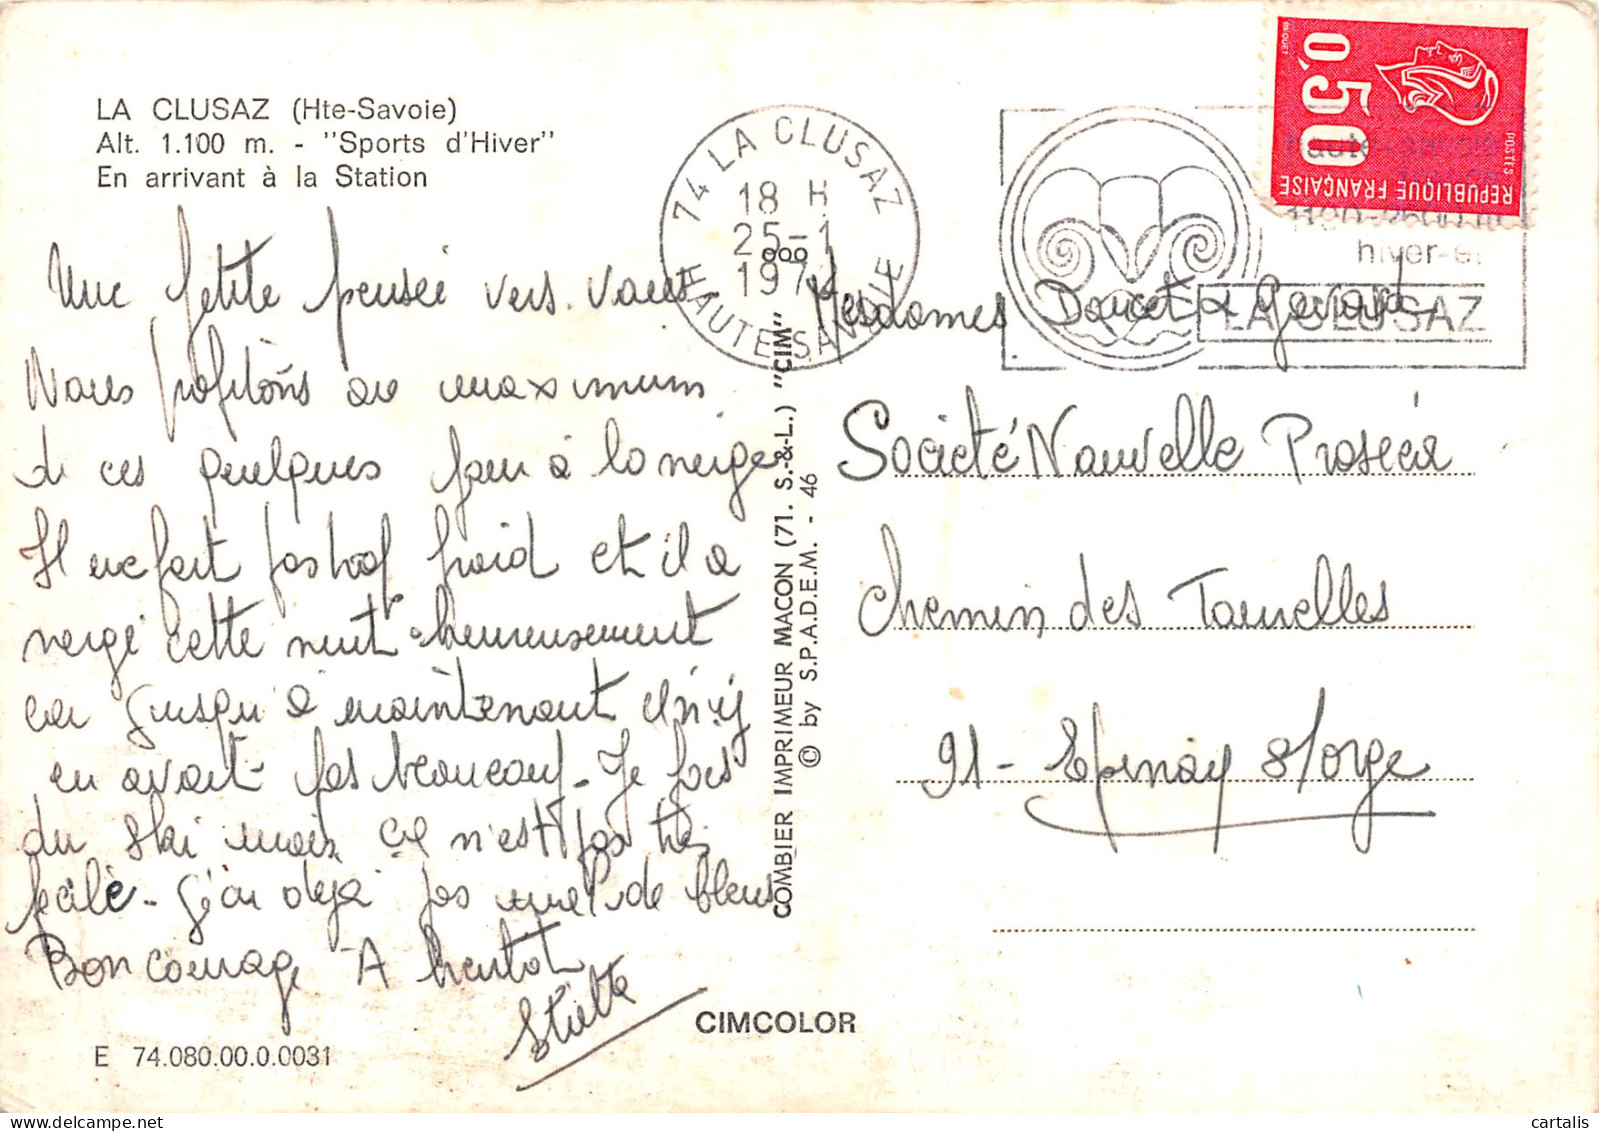 LA CLUSAZ (Hte-Savoie)
Alt. 1.100 m. - "Sports d'Hiver"
En arrivant à la Station
Une petite pensée vers vous
Nous profitons au maximum
de ces quelques jours à la neige
Il ne fait pas trop froid et il a
neigé cette nuit heureusement
car jusqu'à maintenant il n'y
en avait pas beaucoup - Je fais
du ski mais ce n'est pas très
facile - J'ai déjà pas mal de bleus
Bon courage A bientôt
E 74.080.00.0.0031
CIMCOLOR
COMBIER IMPRIMEUR MACON (71. S.-&-L.) "CIM"
© by S.P.A.D.E.M. - 46
74 LA CLUSAZ
18 H
25-1
197
HAUTE SAVOIE
haute-savoie
hiver-été
LA CLUSAZ
0,50
REPUBLIQUE FRANÇAISE
POSTES
BEQUET
Mesdames Doucet &
Société Nouvelle
Chemin des Tourelles
91 - Epinay s/orge
cartalis